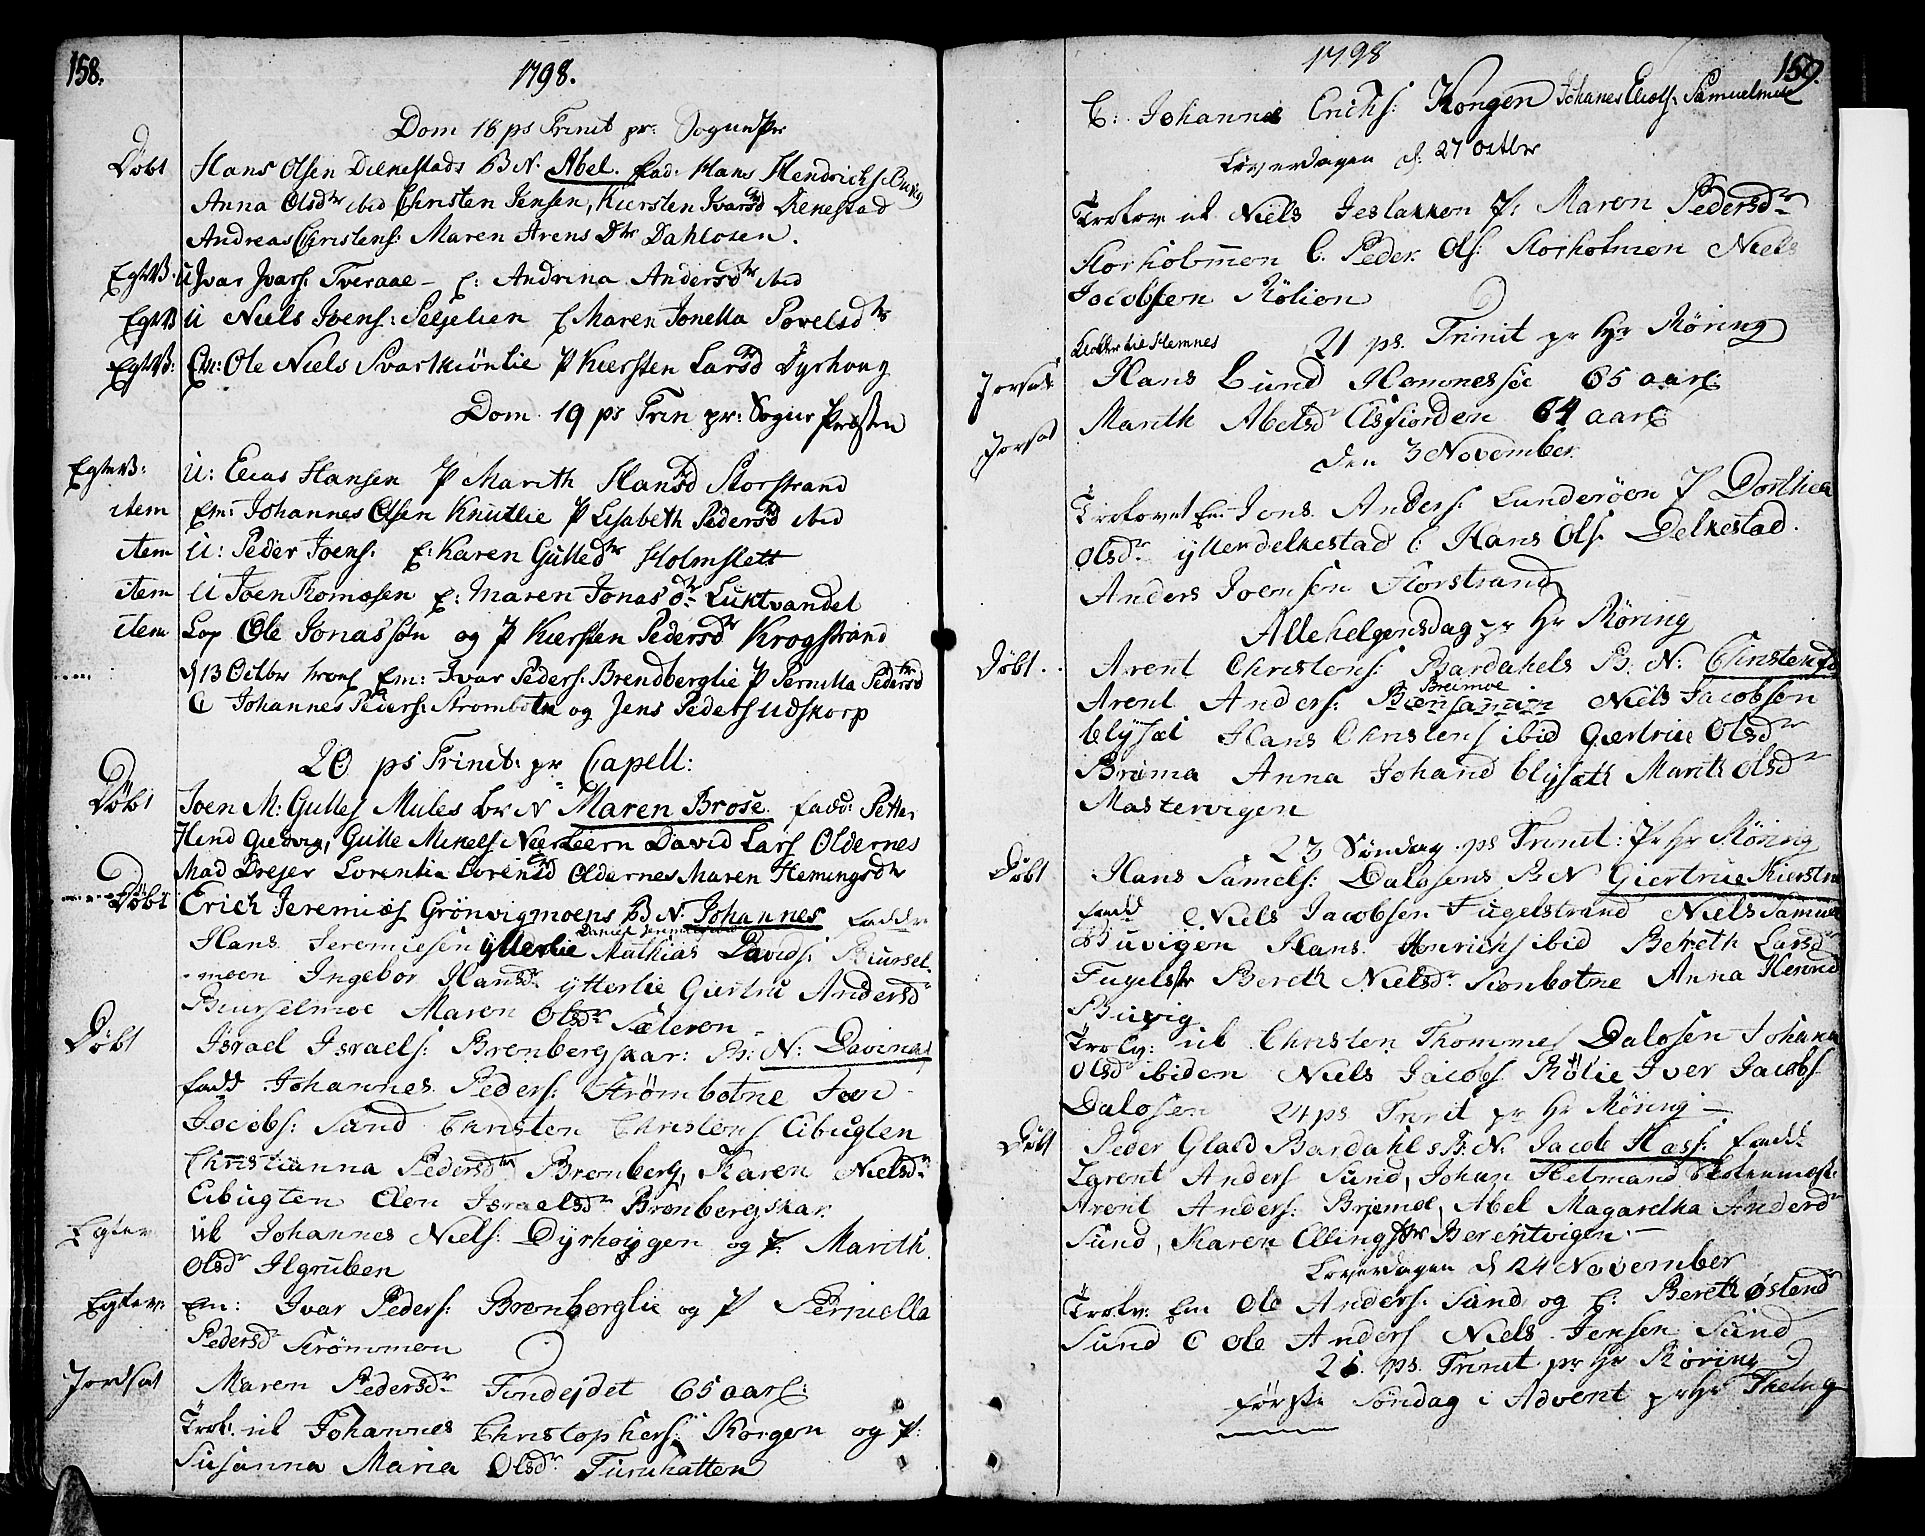 158.
1798.
Dom 18 ps Trinit pr: SognePr
Døbt Hans Olsen Delkestads B N. Abel. fad: Hans Hendrichs Buvig
Anna Olsdtr ibid Christen Jensen, Kiersten Ivarsd Delkestad
Andreas Christens: Maren Arens Dtr Dahlosen.
EgteV: U Ivar Ivars: Tveraae - E: Andrina Andersdtr ibid
EgteV U Niels Joens: Seljelien E Maren Jonetta Povelsdtr
EgteV: Em: Ole Niels Svartkiønlie P Kiersten Larsd Dyrhoug
Dom 19 ps Trin pr: Sogne Præsten
EgteV: U: Elias Hansen P Marith Hansd Storstrand
item Em: Johannes Olsen Knutlie P Lisabeth Pedersd ibid
item U: Peder Joens: E: Karen Gulledtr Holmslett
item U Joen Thomæsen E: Maren Jonasdr Luktvandet
item Lap Ole Jonassøn og P Kiersten Pedersdr Krogstrand
d 13 Octbr trol Em: Ivar Peders: Brendberglie P Pernilla Pedersd
C Johannes Peders: Strombotn og Jens Peders udskorp
20 ps Trinit: pr Capell:
Døbt Joen M: Gulles Mules br N Maren Brose fadd: Petter
Hend Giedvig, Gulle Mikels Nerleern David Lars Oldernes
Mad Drejer Lorentia Lorensd Oldernes Maren Hemingsdtr
Døbt Erich Jeremiæs Grönvigmoens B N: Johannes faddr
Daniel Jeremiæs
Hans Jeremiesen ytterlie Mathias Davids: Biursel-
moen Ingebor Hansdr ytterlie Giertru Andersd
Biurselmoe Maren Olsdr Sæteren
Døbt Israel Israels: Brenbergskar: B: N: Davina
fadd Johannes Peders: Strømbotne Joen
Jocobs: Sand Christen Christens Eibugten
Christianna Pedersdtr Brenberg, Karen Nielsdr
Eibugten Elen Israelsdr Brenbergskar
Egtev: uk Johannes Niels: Dyrhøygen og P: Marith
Olsdr Ilgruben
Egtev: Em: Ivar Peders: Brenberglie og P Pernella
Pedersdr Strømmen
Jordsat Maren Pedersdr Findejdet 65 aar:
Trol: uk Johannes Christophers: Korgen og P:
Susanna Maria Olsdr Turnhatten
1798
159.
C: Johannes Erichs: Korgen Johanes Eliæs: Samuelmoe
Løverdagen d: 27 octbr
Trolov uk Niels Jeslakken P: Maren Pedersdr
Storholmen C. Peder Ols: Storholmen Niels
Jocobsen Rølien
21 ps. Trinit pr Hr Møring
Klokker til Hemnes
Jorsat Hans Lund Hemnessøe 65 aar
Jorsat Marith Abelsdr Elsfiorden 64 aar
den 3 November
Trolovet Em Jons Anders: Lunderøen P Dorthea
Olsdr ytterdelkestad C Hans Ols: Delkestad.
Anders Joensen Storstrand
Allehelgensdag pr Hr Møring
Døbt. Arent Christens: Bardahels B: N: Christen fd
Breimoe
Arent Anders: Niels Jacobsen
blysæt Hans Christens ibid Giertrue Olsdr
Brema Anna Johand blysæth Marith Olsd
Mastervigen
23 Søndag ps Trinit: Pr Hr Møring
Døbt Hans Samels: Dalosens B N Giertrue Kierstna
fadd Niels Jacobsen Fugelstrand Niels Samuel
Buvigen Hans Henrichs ibid Bereth Larsdr
Fugelstr Bereth Nielsdr Sionbotne Anna Henrid
Buvig
Trolv: uk Christen Thommes Dalosen Johana
Olsd ibiden Niels Jacobs Rølie Iver Jacobs
Dalosen 24 ps Trinit pr Hr Møring
Døbt Peder Glæd Bardahls B: N: Jacob Hass: fadd:
Larent Anders Sund, Johan Helmand Skolemest:
Arent Anders: Brejmoe, Abel Magaretha Andersd
Sund, Karen Ellingsdtr Berentvigen.
Løverdagen d 24 November
Trolv: Em Ole Anders: Sand og E: Bereth Østend
Sund C Ole Anders Niels Jensen Sund
26 ps. Trinit pr Hr Møring
første Søndag i Advent pr Hr Thelug